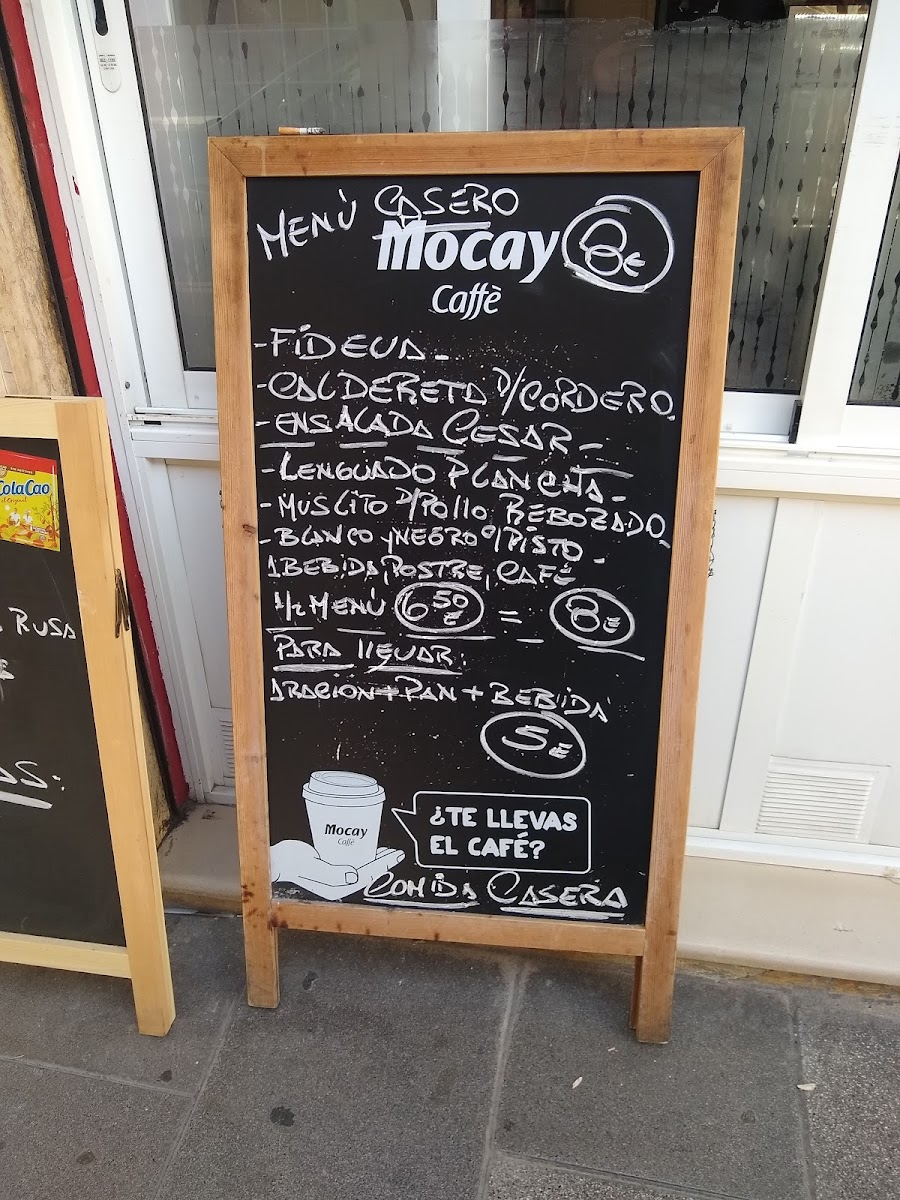 MENÙ CASERO 8€
Mocay
Caffè
-FIDEUA-
-CALDERETA D/CORDERO.
-ENSALADA CESAR-
-LENGUADO PLANCHA-
-MUSLITO D/POLLO REBOZADO-
-BLANCO Y NEGRO C/PISTO-
1 BEBIDA, POSTRE, CAFÉ
1/2 MENÚ 6 50 € = 8€
PARA LLEVAR:
1 RACION + PAN + BEBIDA
5€
Mocay
Caffè
¿TE LLEVAS
EL CAFÉ?
COMIDA CASERA
ColaCao
el Original
RUSA
AS: